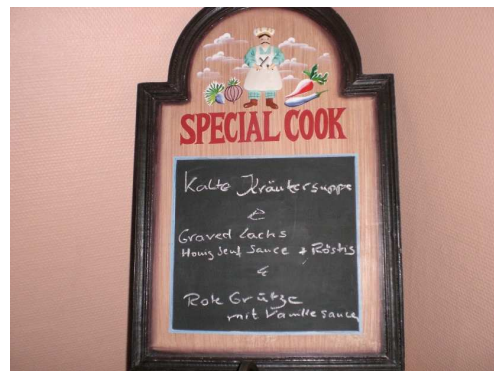 SPECIAL COOK
Kalte Kräutersuppe
Graved Lachs
Honig Senf Sauce + Röstis
Rote Grütze
mit Vanillesauce